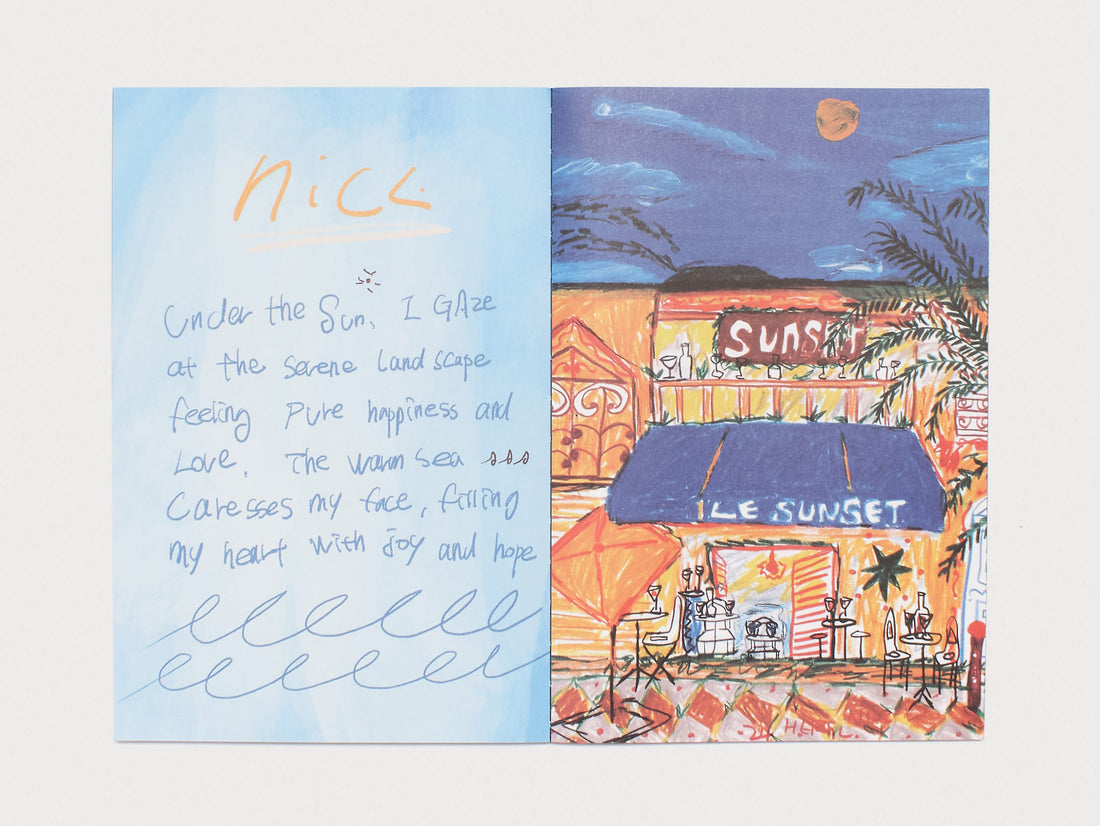 nicc
Under the Sun, I GAze
at the serene landscape
feeling pure happiness and
Love. The warm sea
Caresses my face, filling
my heart with joy and hope
SUNSET
LE SUNSET